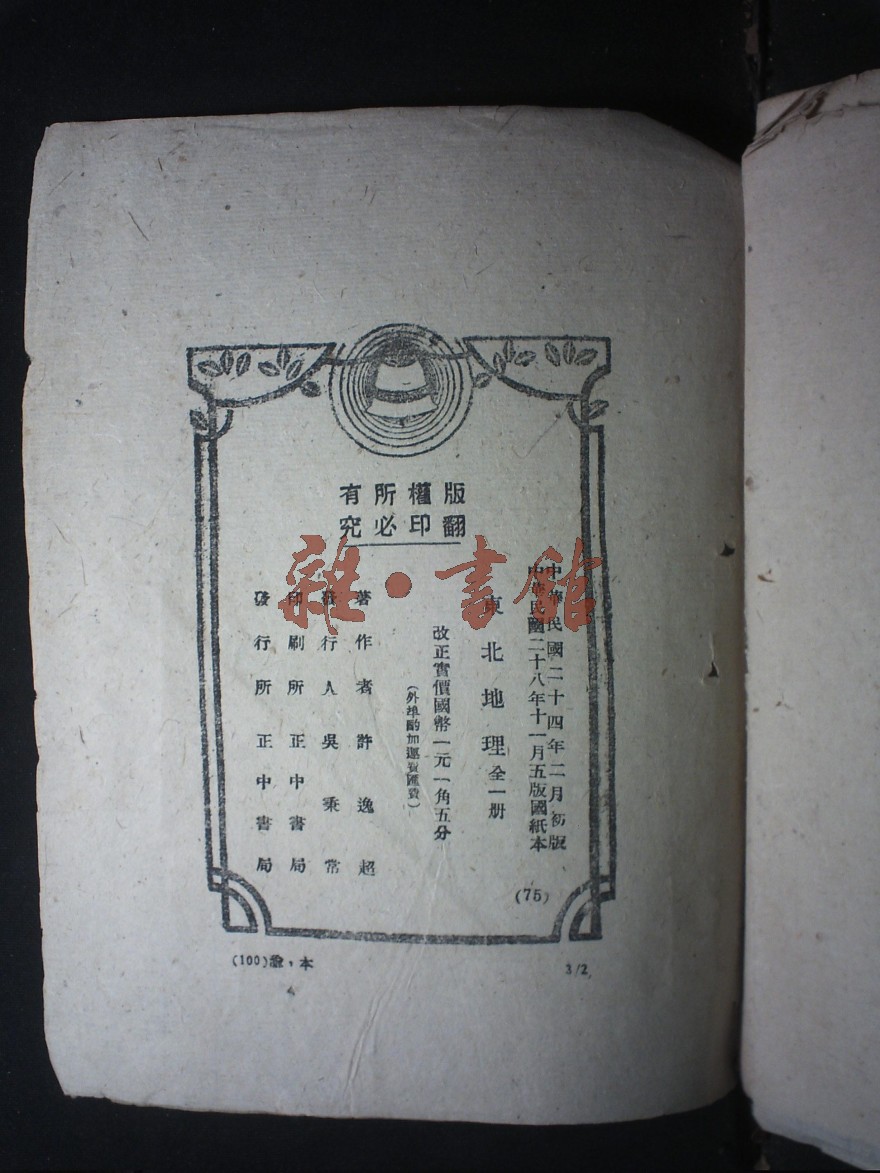 版權所有
翻印必究
中華民國二十四年二月初版
中華民國二十八年十一月五版國紙本
(75)
東北地理全一册
改正實價國幣一元一角五分
(外埠酌加運費匯費)
著作者許逸超
發行人吳秉常
印刷所正中書局
發行所正中書局
雜·書館
(100)
本
3/2